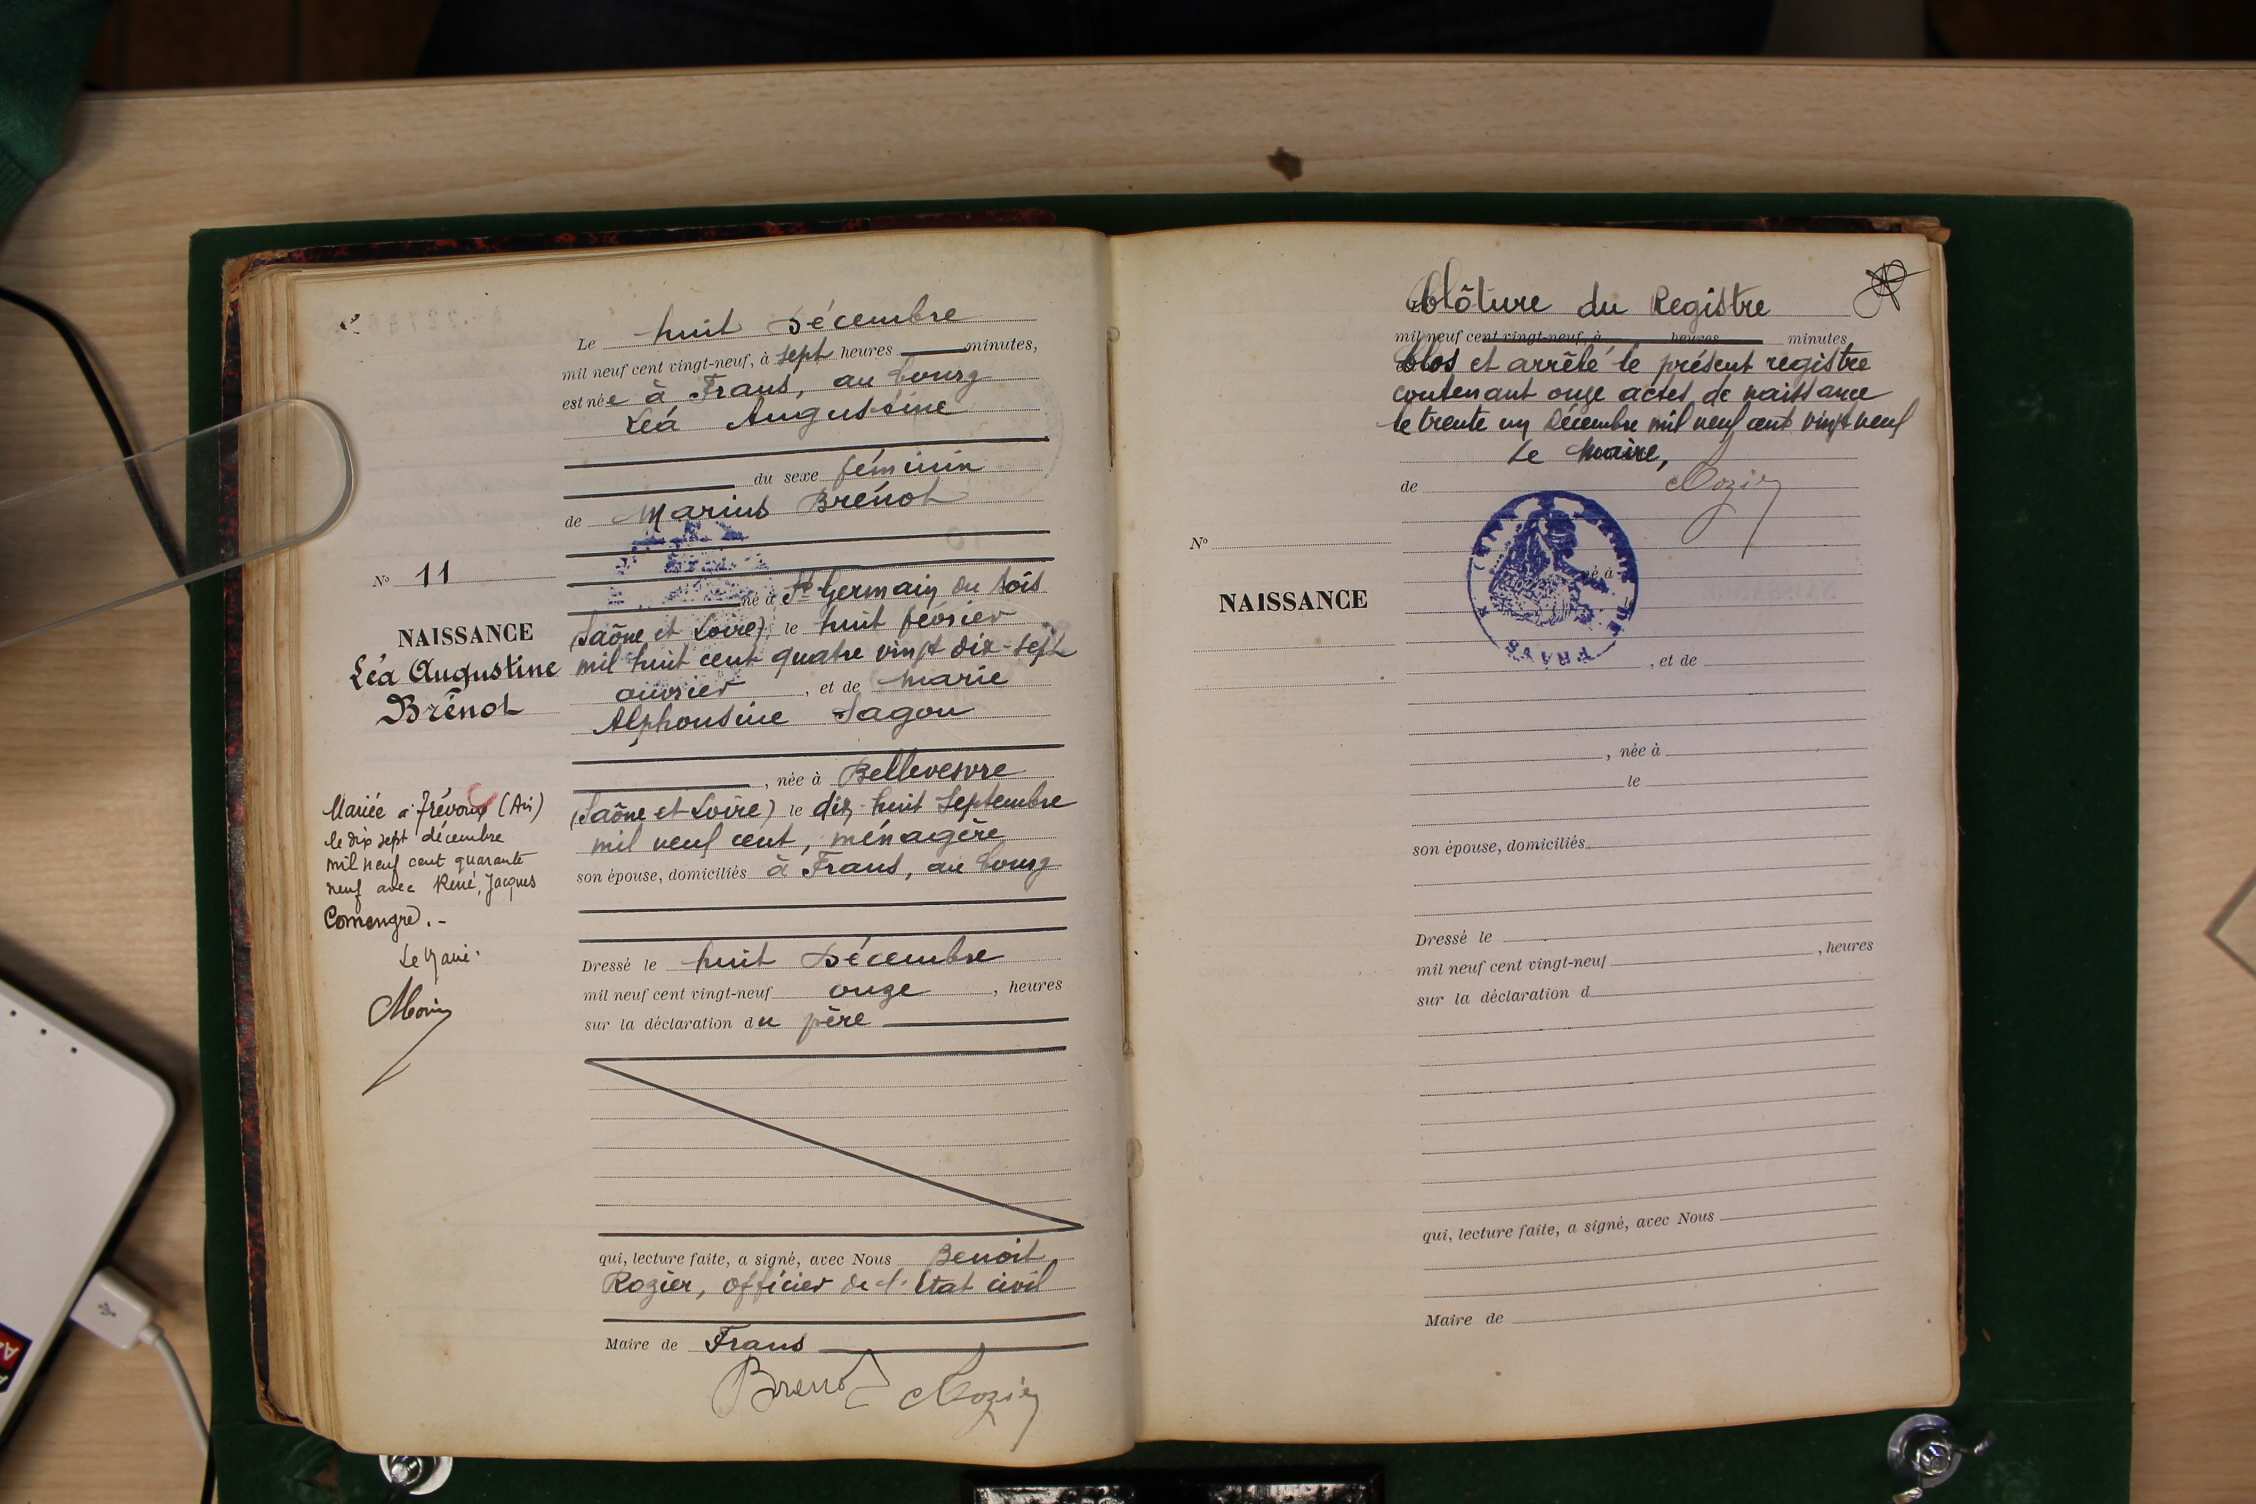 Le huit Décembre
mil neuf cent vingt-neuf, à sept heures minutes,
est née à Frans, au bourg
Léa Augustine
du sexe féminin
de Marius Brénot
né à St Germain du Bois
(Saône et Loire), le huit février
mil huit cent quatre vingt dix-sept
ouvrier, et de Marie
Alphonsine Sagon
, née à Bellevesvre
(Saône et Loire) le dix-huit Septembre
mil neuf cent, ménagère
son épouse, domiciliés à Frans, au bourg
Dressé le huit Décembre
mil neuf cent vingt-neuf onze, heures
sur la déclaration du père
qui, lecture faite, a signé, avec Nous Benoit
Rozier, officier de l'Etat civil
Maire de Frans
Brenot Rozier
No 11
NAISSANCE
Léa Augustine
Brénot
Mariée à Trévoux (Ain)
le dix sept décembre
mil neuf cent quarante
neuf avec René, Jacques
Comengre.-
Le Maire:
Clôture du Registre
mil neuf cent vingt-neuf, à heures minutes
Clos et arrêté le présent registre
contenant onze actes de naissance
le trente un Décembre mil neuf cent vingt neuf
Le Maire,
de Rozier
né à
, et de
, née à
le
son épouse, domiciliés
Dressé le
mil neuf cent vingt-neuf , heures
sur la déclaration d
qui, lecture faite, a signé, avec Nous
Maire de
No
NAISSANCE